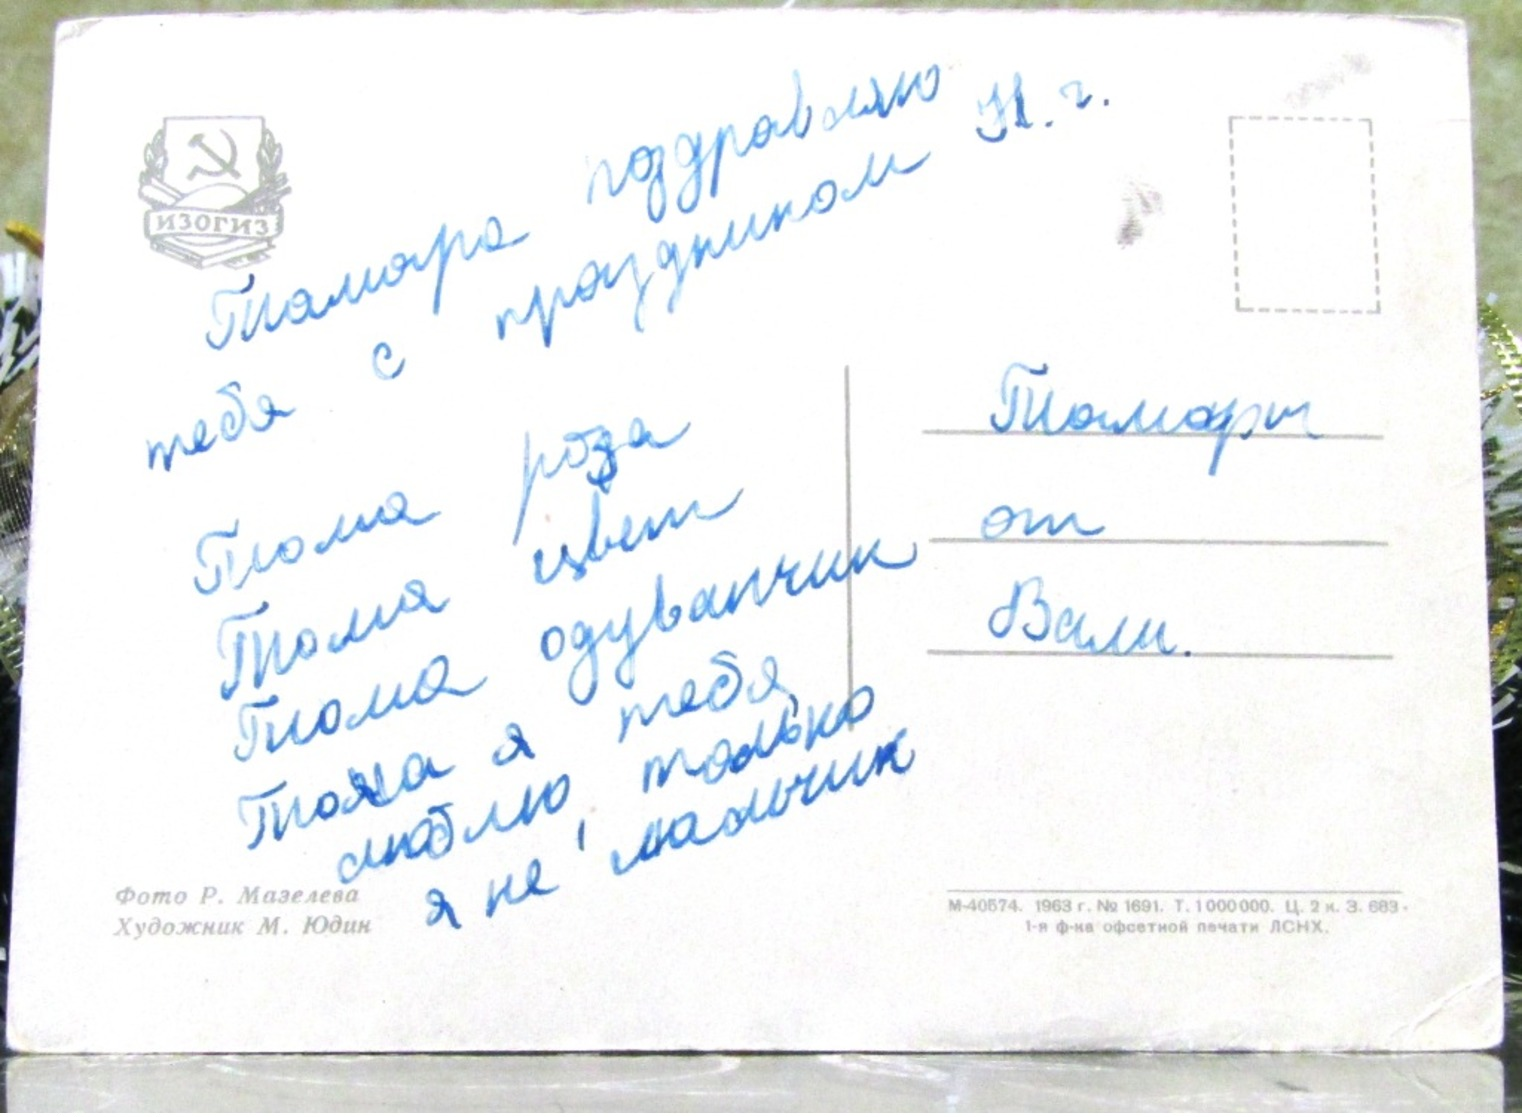 ИЗОГИЗ
Тамара поздравляю
тебя с праздником Н. г.
Тома роза
Тома цвет
Тома одуванчик
Тома я тебя
люблю, только
я не мальчик
Тамары
от
Вали.
Фото Р. Мазелева
Художник М. Юдин
М-40574. 1963 г. № 1691. Т. 1 000 000. Ц. 2 к. З. 683.
1-я ф-ка офсетной печати ЛСНХ.